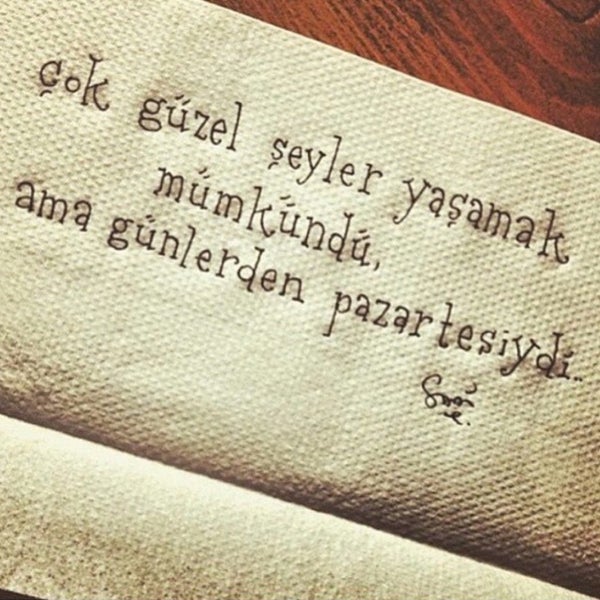 çok güzel şeyler yaşamak
mümkündü,
ama günlerden pazartesiydi..